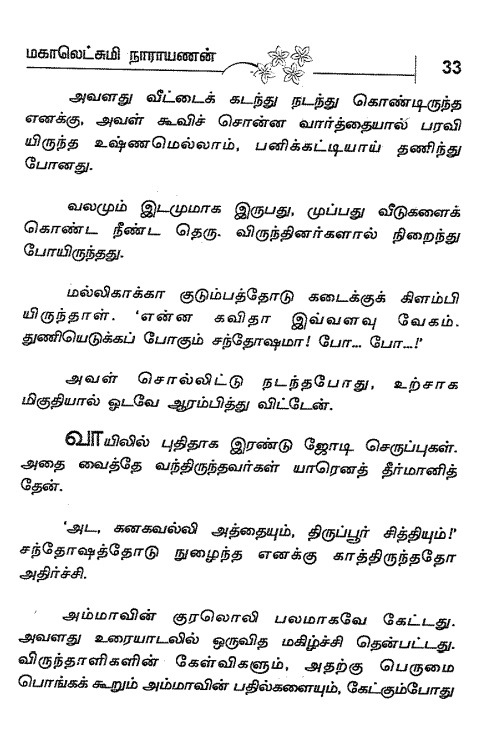 மகாலெட்சுமி நாராயணன்
33
அவளது வீட்டைக் கடந்து நடந்து கொண்டிருந்த
எனக்கு, அவள் கூவிச் சொன்ன வார்த்தையால் பரவி
யிருந்த உஷ்ணமெல்லாம், பனிக்கட்டியாய் தணிந்து
போனது.
வலமும் இடமுமாக இருபது, முப்பது வீடுகளைக்
கொண்ட நீண்ட தெரு. விருந்தினர்களால் நிறைந்து
போயிருந்தது.
மல்லிகாக்கா குடும்பத்தோடு கடைக்குக் கிளம்பி
யிருந்தாள். ‘என்ன கவிதா இவ்வளவு வேகம்.
துணியெடுக்கப் போகும் சந்தோஷமா! போ... போ...!’
அவள் சொல்லிட்டு நடந்தபோது, உற்சாக
மிகுதியால் ஓடவே ஆரம்பித்து விட்டேன்.
வாயிலில் புதிதாக இரண்டு ஜோடி செருப்புகள்.
அதை வைத்தே வந்திருந்தவர்கள் யாரெனத் தீர்மானித்
தேன்.
‘அட, கனகவல்லி அத்தையும், திருப்பூர் சித்தியும்!’
சந்தோஷத்தோடு நுழைந்த எனக்கு காத்திருந்ததோ
அதிர்ச்சி.
அம்மாவின் குரலொலி பலமாகவே கேட்டது.
அவளது உரையாடலில் ஒருவித மகிழ்ச்சி தென்பட்டது.
விருந்தாளிகளின் கேள்விகளும், அதற்கு பெருமை
பொங்கக் கூறும் அம்மாவின் பதில்களையும், கேட்கும்போது